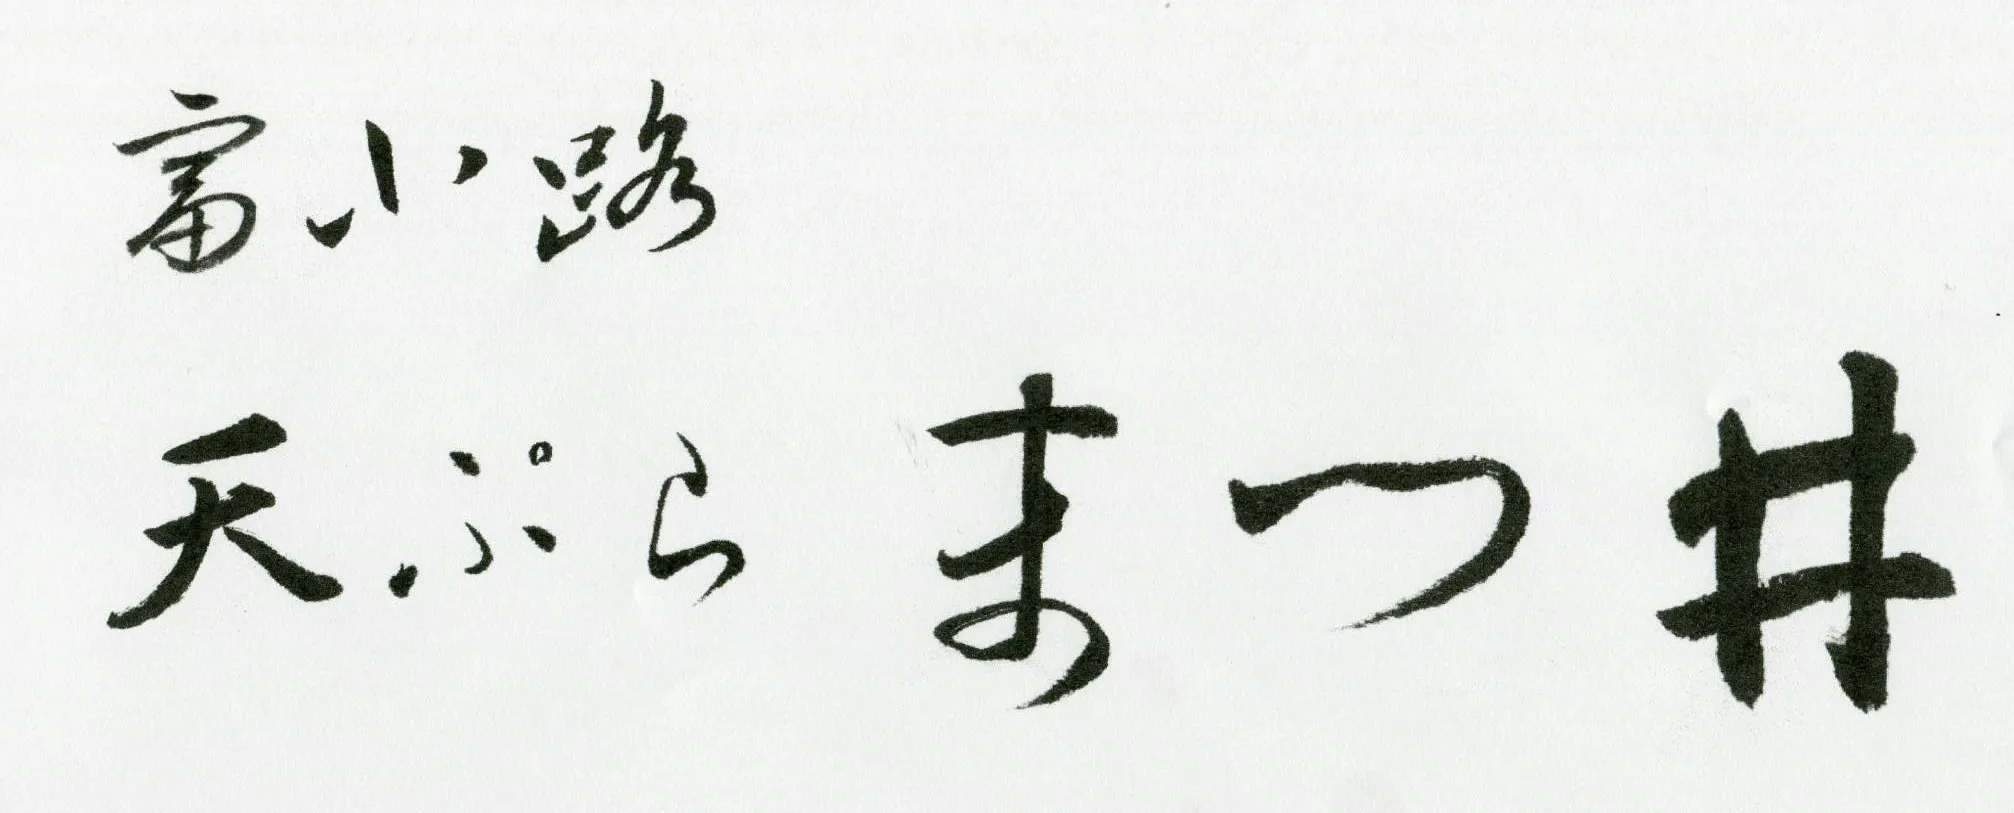 富小路
天ぷら まつ井